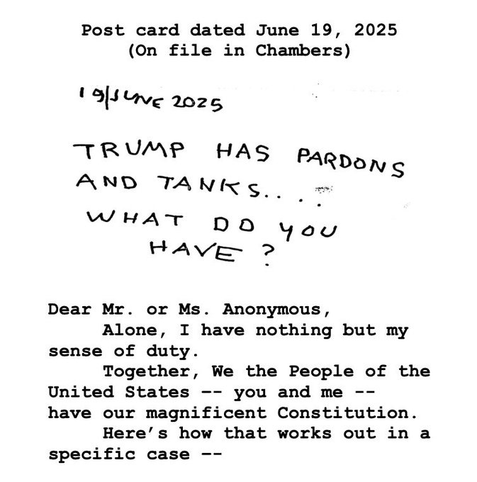 Post card dated June 19, 2025
(On file in Chambers)
19/JUNE 2025
TRUMP HAS PARDONS
AND TANKS....
WHAT DO YOU
HAVE?
Dear Mr. or Ms. Anonymous,
Alone, I have nothing but my
sense of duty.
Together, We the People of the
United States -- you and me --
have our magnificent Constitution.
Here's how that works out in a
specific case --